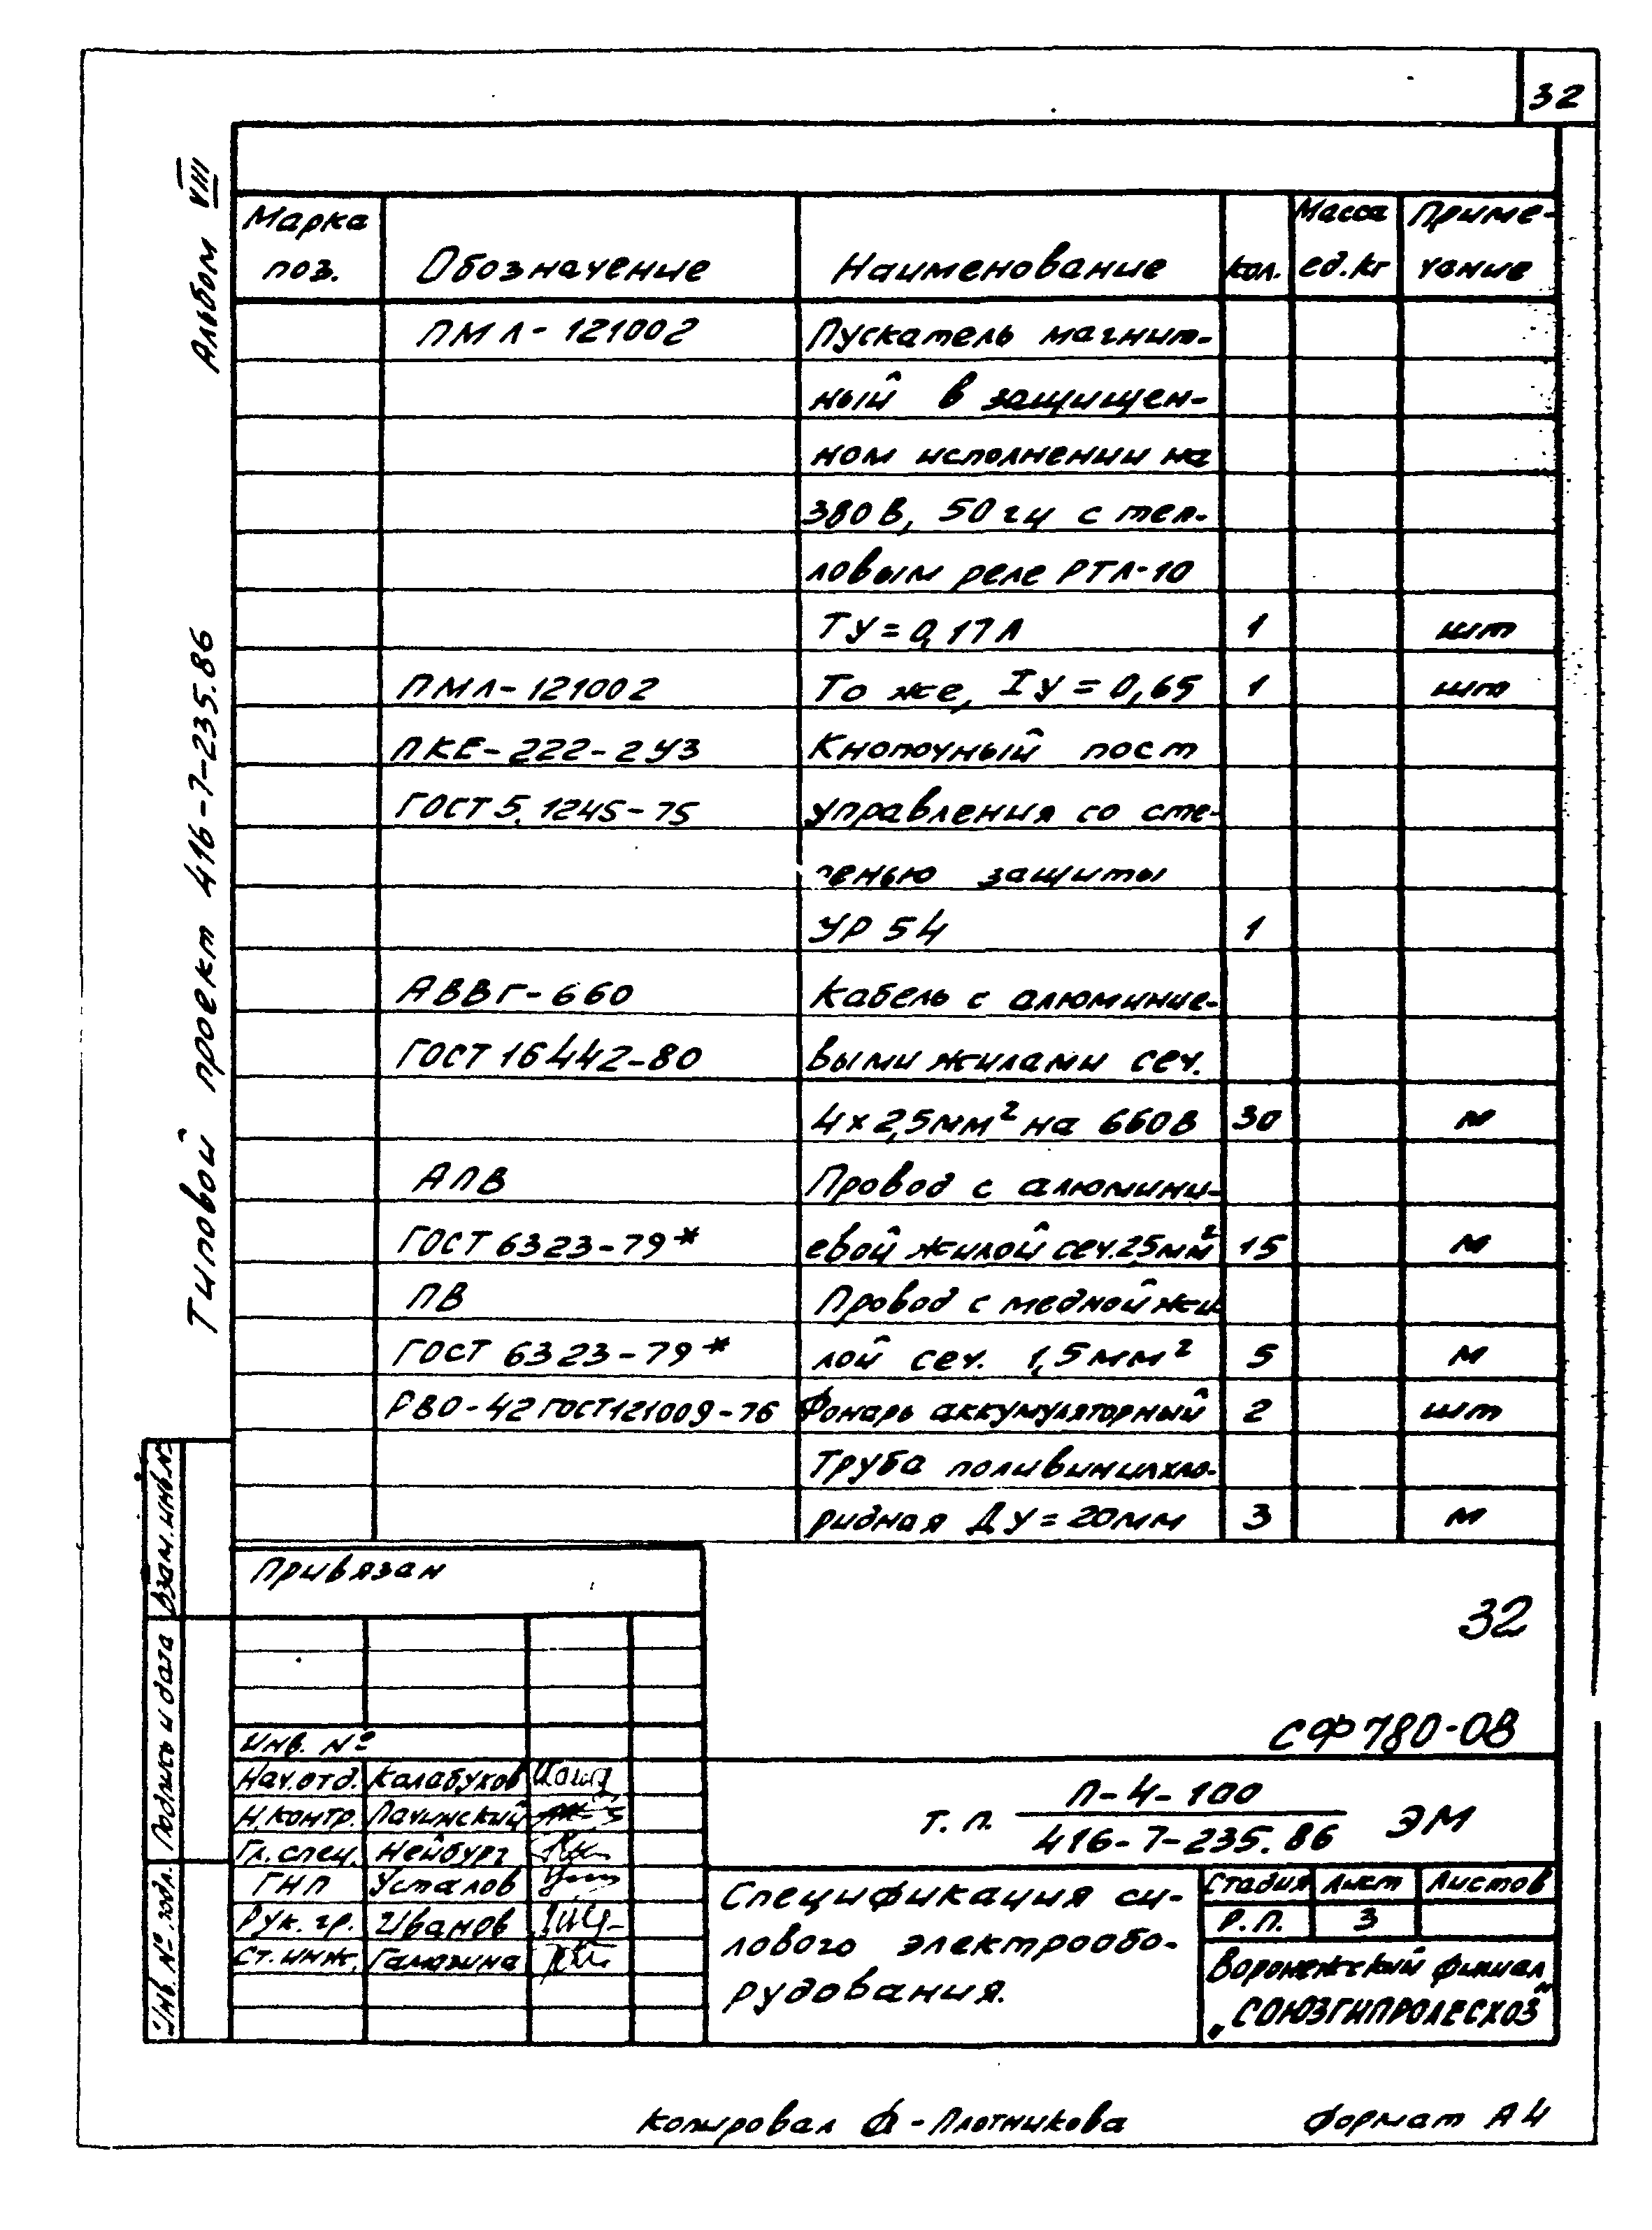 32
Альбом VIII
Типовой проект 416-7-235.86
Марка поз. Обозначение Наименование Кол. Масса ед.кг Приме-чание
ПМЛ-121002 Пускатель магнит-
ный в защищен-
ном исполнении на
380В, 50гц с теп-
ловым реле РТЛ-10
ТУ=0,17А 1 шт
ПМЛ-121002 То же, IУ=0,65 1 шт
ПКЕ-222-2У3 Кнопочный пост
ГОСТ 5.1245-75 управления со сте-
пенью защиты
УР 54 1
АВВГ-660 Кабель с алюминие-
ГОСТ 16442-80 выми жилами сеч.
4х2,5мм² на 660В 30 м
АПВ Провод с алюмини-
ГОСТ 6323-79* евой жилой сеч.2,5мм² 15 м
ПВ Провод с медной жи
ГОСТ 6323-79* лой сеч. 1,5мм² 5 м
РВО-42 ГОСТ121009-76 Фонарь аккумуляторный 2 шт
Труба поливинилхло-
ридная ДУ=20мм 3 м
Взам.инв.№
Подпись и дата
Инв.№ подл.
Привязан
32
СФ780-08
Инв. №
Нач.отд. Калабухов
Н.контр. Лачинский
Гл.спец. Нейбург
ГНП Усталов
Рук.гр. Иванов
Ст.инж. Гамазина
т.п. П-4-100
416-7-235.86 ЭМ
Спецификация си-
лового электрообо-
рудования.
Стадия Лист Листов
Р.П. 3
Воронежский филиал
„СОЮЗГИПРОЛЕСХОЗ"
Копировал Ф-Плотникова Формат А4